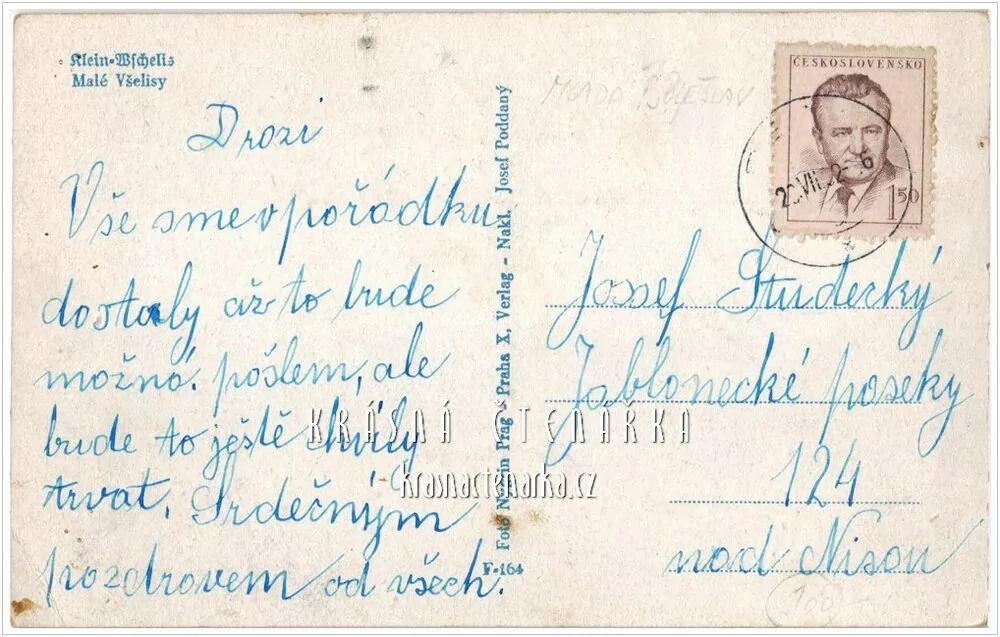 Klein-Wschelis
Malé Všelisy
Drozi
Vše sme v pořádku
dostaly až to bude
možná. pošlem, ale
bude to ještě chvíly
trvat. Srdečným
pozdravem od všech.
Nakl. Josef Poddaný
Praha X, Verlag -
Foto
Prag -
F-164
MLADÁ BOLESLAV
ČESKOSLOVENSKO
1 50
Josef Studecký
Jablonecké paseky
124
nad Nisou
KRÁSNÁ ČTENÁŘKA
krasnactenarka.cz